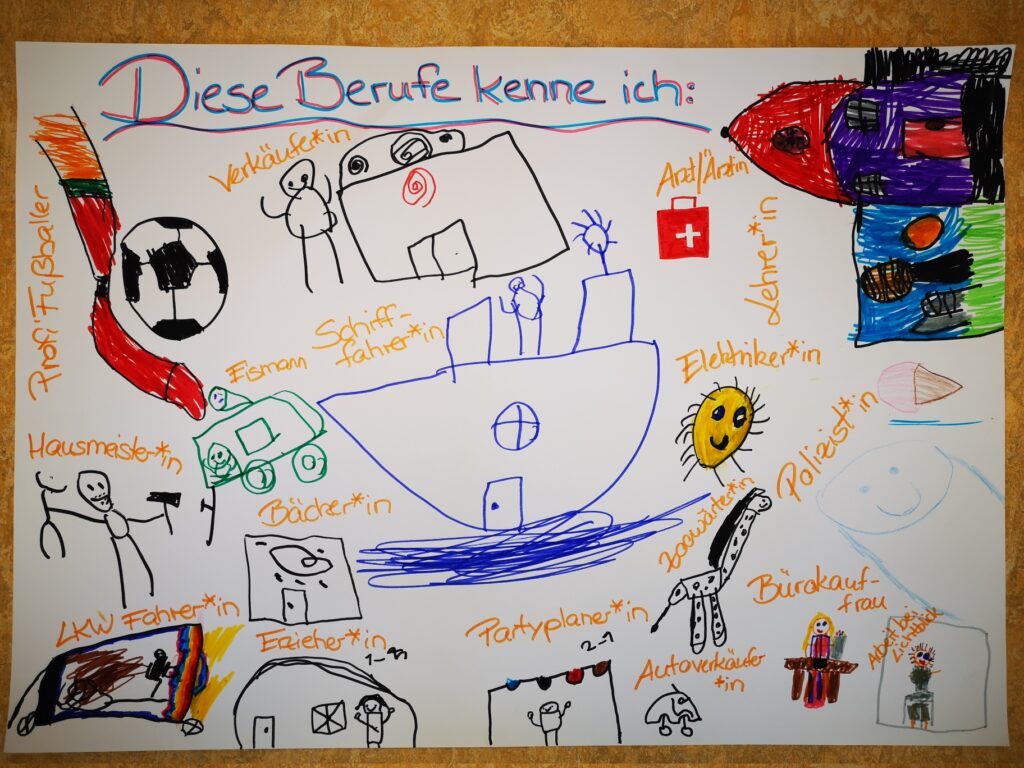 Diese Berufe kenne ich:
Verkäufer*in
Arzt/Ärztin
Lehrer*in
Profi Fußballer
Schiff-
fahrer*in
Eismann
Elektriker*in
Polizist*in
Hausmeister*in
Bäcker*in
Zoowärter*in
Bürokauf-
frau
LKW Fahrer*in
Erzieher*in
1-99
Partyplaner*in
2-1
Autoverkäufer
*in
Arbeit bei
Lichtblick